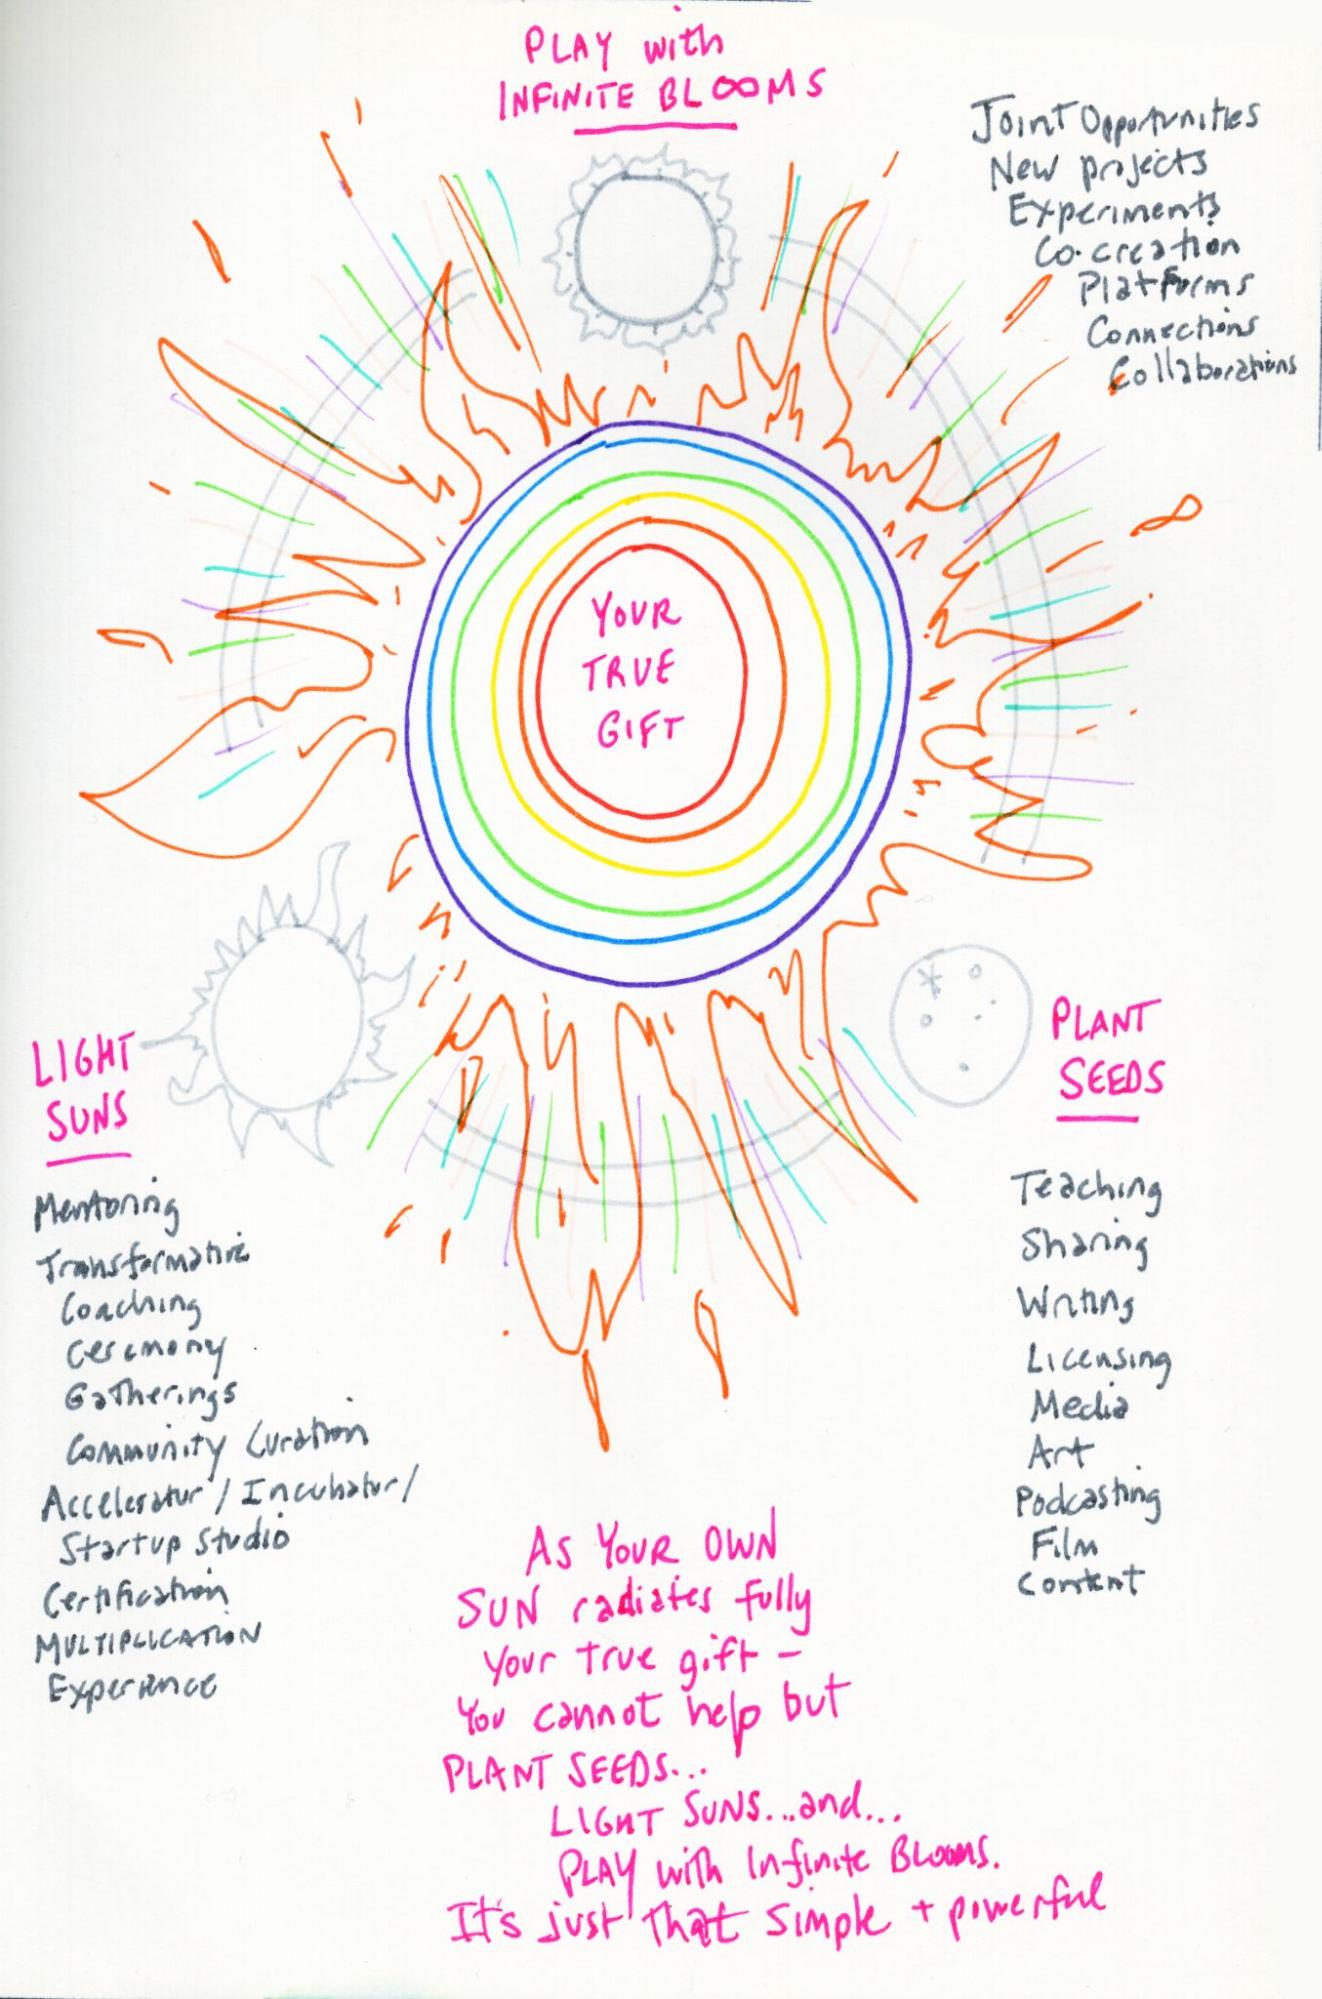 PLAY with
INFINITE BLOOMS
Joint Opportunities
New projects
Experiments
Co-creation
Platforms
Connections
Collaborations
YOUR
TRUE
GIFT
LIGHT
SUNS
Mentoring
Transformative
Coaching
Ceremony
Gatherings
Community Curation
Accelerator / Incubator /
Startup Studio
Certification
MULTIPLICATION
Experience
PLANT
SEEDS
Teaching
Sharing
Writing
Licensing
Media
Art
Podcasting
Film
Content
AS YOUR OWN
SUN radiates fully
Your true gift –
You cannot help but
PLANT SEEDS...
LIGHT SUNS...and...
PLAY with Infinite BLOOMS.
It's just that simple + powerful